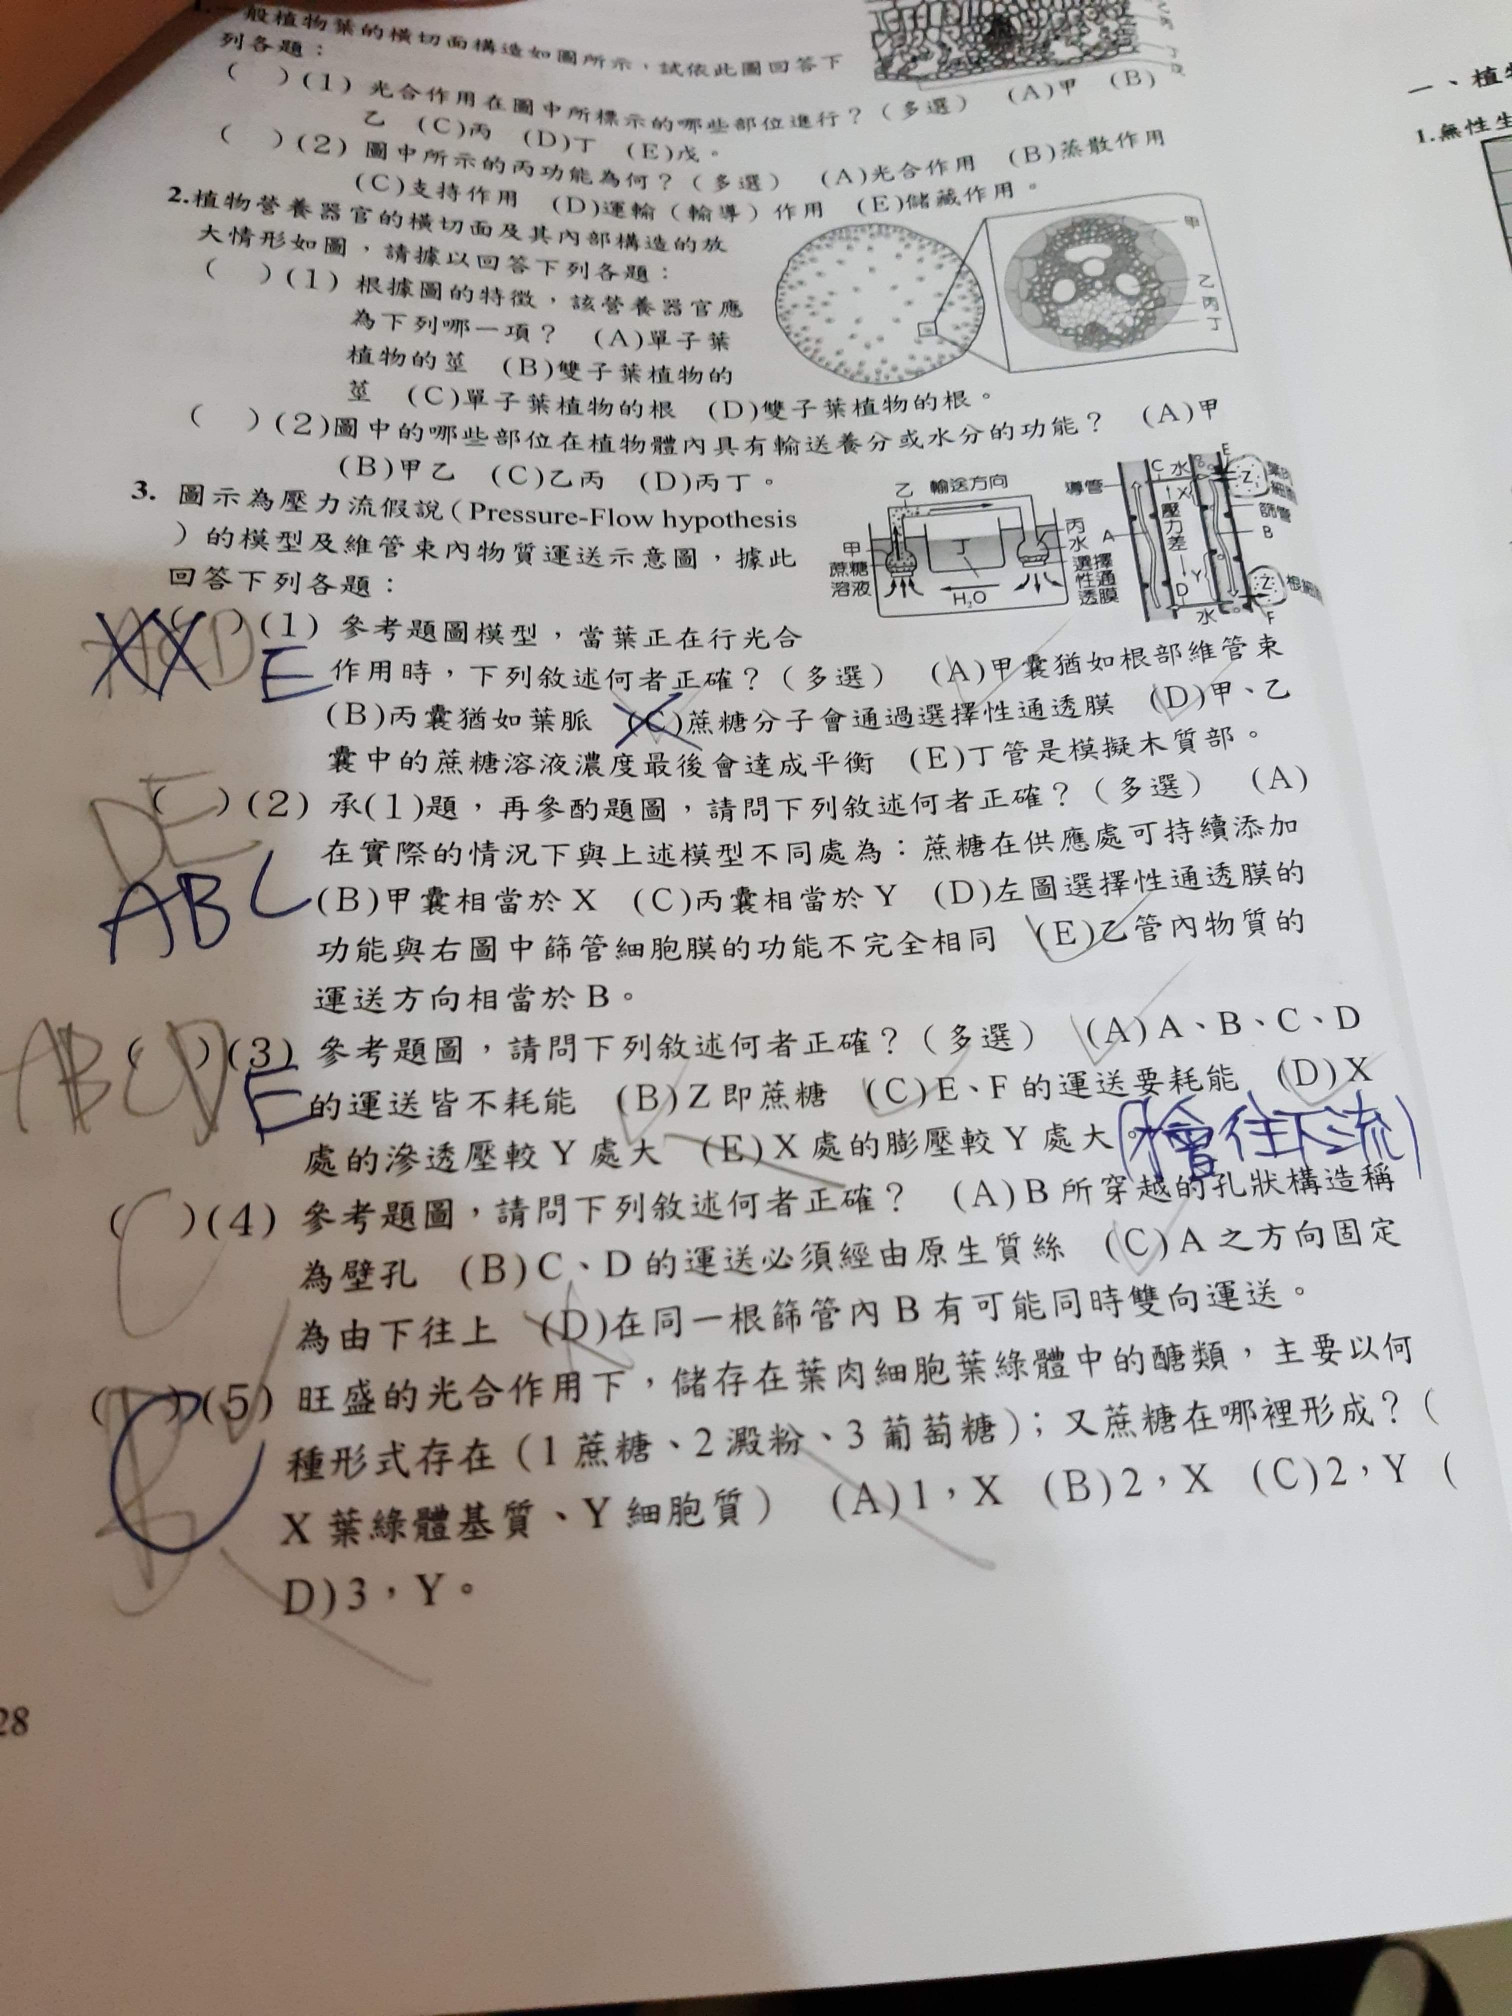 一般植物葉的橫切面構造如圖所示，試依此圖回答下
列各題：
(　)(1) 光合作用在圖中所標示的哪些部位進行？（多選） (A)甲 (B)
乙 (C)丙 (D)丁 (E)戊。
(　)(2) 圖中所示的丙功能為何？（多選） (A)光合作用 (B)蒸散作用
(C)支持作用 (D)運輸（輸導）作用 (E)儲藏作用。
2.植物營養器官的橫切面及其內部構造的放
大情形如圖，請據以回答下列各題：
甲
乙
丙
丁
(　)(1) 根據圖的特徵，該營養器官應
為下列哪一項？ (A)單子葉
植物的莖 (B)雙子葉植物的
莖 (C)單子葉植物的根 (D)雙子葉植物的根。
(　)(2)圖中的哪些部位在植物體內具有輸送養分或水分的功能？ (A)甲
(B)甲乙 (C)乙丙 (D)丙丁。
3. 圖示為壓力流假說(Pressure-Flow hypothesis
)的模型及維管束內物質運送示意圖，據此
回答下列各題：
乙 輸送方向
甲
蔗糖
溶液
丁
丙
水
選擇
性通
透膜
H₂O
導管
A
C 水
E
X
壓
力
差
Y
D
水
Z
篩管
B
Z
F
(　)(1) 參考題圖模型，當葉正在行光合
E
作用時，下列敘述何者正確？（多選） (A)甲囊猶如根部維管束
(B)丙囊猶如葉脈 (C)蔗糖分子會通過選擇性通透膜 (D)甲、乙
囊中的蔗糖溶液濃度最後會達成平衡 (E)丁管是模擬木質部。
DE
(　)(2) 承(1)題，再參酌題圖，請問下列敘述何者正確？（多選） (A)
在實際的情況下與上述模型不同處為：蔗糖在供應處可持續添加
ABC
(B)甲囊相當於X (C)丙囊相當於Y (D)左圖選擇性通透膜的
功能與右圖中篩管細胞膜的功能不完全相同 (E)乙管內物質的
運送方向相當於B。
ABCD
(　)(3) 參考題圖，請問下列敘述何者正確？（多選） (A)A、B、C、D
E
的運送皆不耗能 (B)Z即蔗糖 (C)E、F的運送要耗能 (D)X
處的滲透壓較Y處大 (E)X處的膨壓較Y處大。
會往下流
C
(　)(4) 參考題圖，請問下列敘述何者正確？ (A)B所穿越的孔狀構造稱
為壁孔 (B)C、D的運送必須經由原生質絲 (C)A之方向固定
為由下往上 (D)在同一根篩管內B有可能同時雙向運送。
C
(　)(5) 旺盛的光合作用下，儲存在葉肉細胞葉綠體中的醣類，主要以何
種形式存在（1蔗糖、2澱粉、3葡萄糖）；又蔗糖在哪裡形成？（
X葉綠體基質、Y細胞質） (A)1，X (B)2，X (C)2，Y (
D)3，Y。
28
一、植
1.無性生